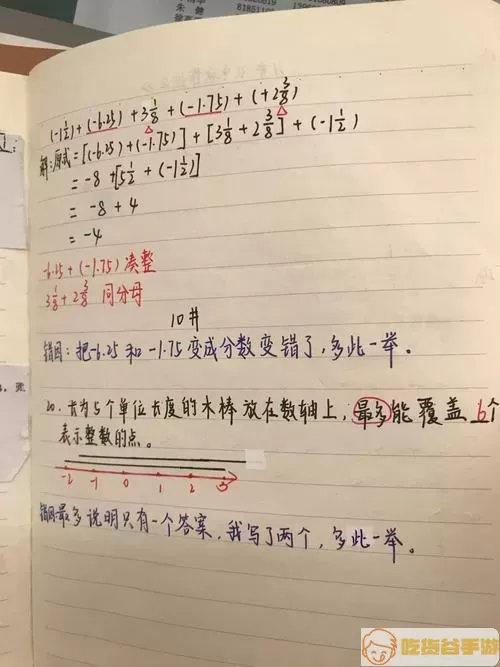 (-1½)+(-6.25)+3⅛+(-1.75)+(+2⅜)
解:原式=[(-6.25)+(-1.75)]+[3⅛+2⅜]+(-1½)
=-8+[5½+(-1½)]
=-8+4
=-4
-6.25+(-1.75)凑整
3⅛+2⅜ 同分母
10井
错因:把-6.25和-1.75变成分数变错了,多此一举。
20. 长为5个单位长度的木棒放在数轴上,最多能覆盖6个
表示整数的点。
-2 -1 0 1 2 3
错因:最多说明只有一个答案,我写了两个,多此一举。
吃货谷手游